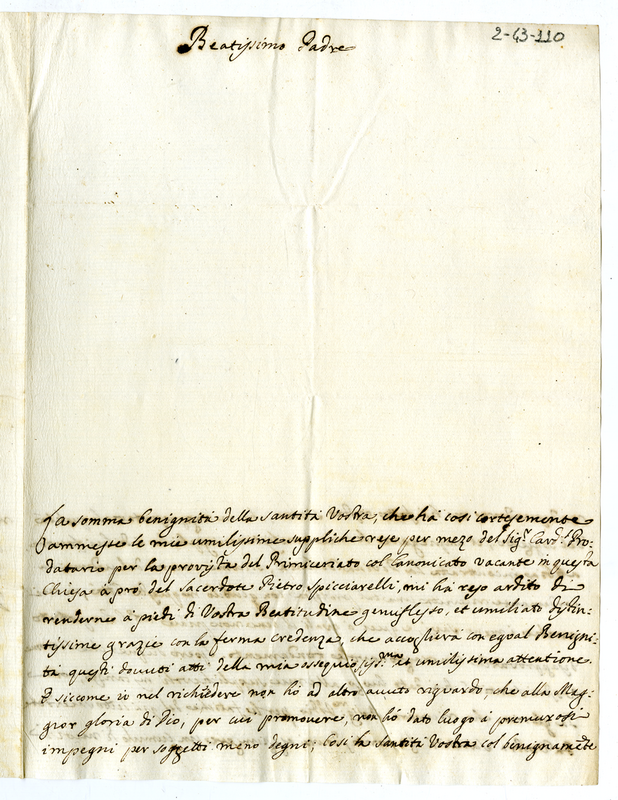 2-43-110
Beatissimo Padre
La somma benignità della Santità Vostra, che hà così cortesemente
ammesse le mie umilissime suppliche rese per mezo del Sig.r Card.l Pro-
datario per la provista del Primiceriato col Canonicato vacante in questa
Chiesa à prò del Sacerdote Pietro Spicciarelli, mi hà reso ardito di
renderne à piedi di Vostra Beatitudine genuflesso, et umiliato distin-
tissime grazie con la ferma credenza, che accoglierà con egual Benigni-
tà questi dovuti atti della mia ossequiosis.ma et umilissima attentione.
E siccome io nel richiedere non hò ad altro avuto riguardo, che alla Mag-
gior gloria di Dio, per cui promovere, non hò dato luogo à premurosi
impegni per soggetti meno degni; Così la Santità Vostra col benignamẽte